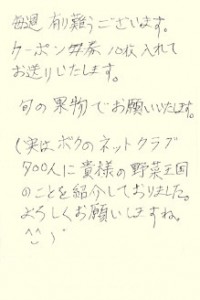 毎週 有り難うございます。
クーポン券 10枚入れて
お送りいたします。
旬の果物でお願いいたします。
(実はボクのネットクラブ
700人に貴様の野菜王国
のことを紹介しておりました。
よろしくお願いしますね。
^^)